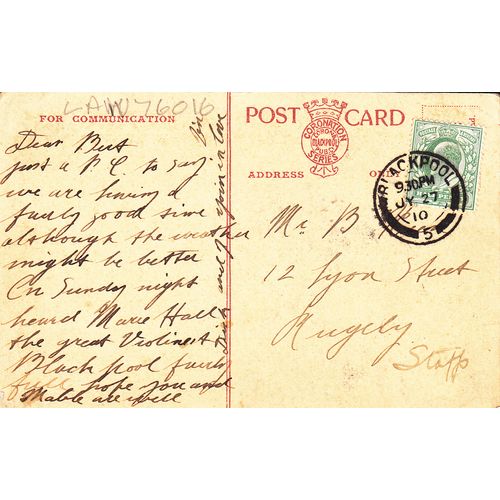 LAW76016
FOR COMMUNICATION
POST CARD
CORONATION
BLACKPOOL
SERIES
ADDRESS ONLY
BLACKPOOL
9.30PM
JY 27
10
5
Dear Bert
just a P.C. to say
we are having a
fairly good time
although the weather
might be better
On Sunday night
heard Marie Hall
the great Violinest
Blackpool fairly
full hope you and
Mable are well
in love
Mr B
12 Lyon Street
Rugely
Staffs